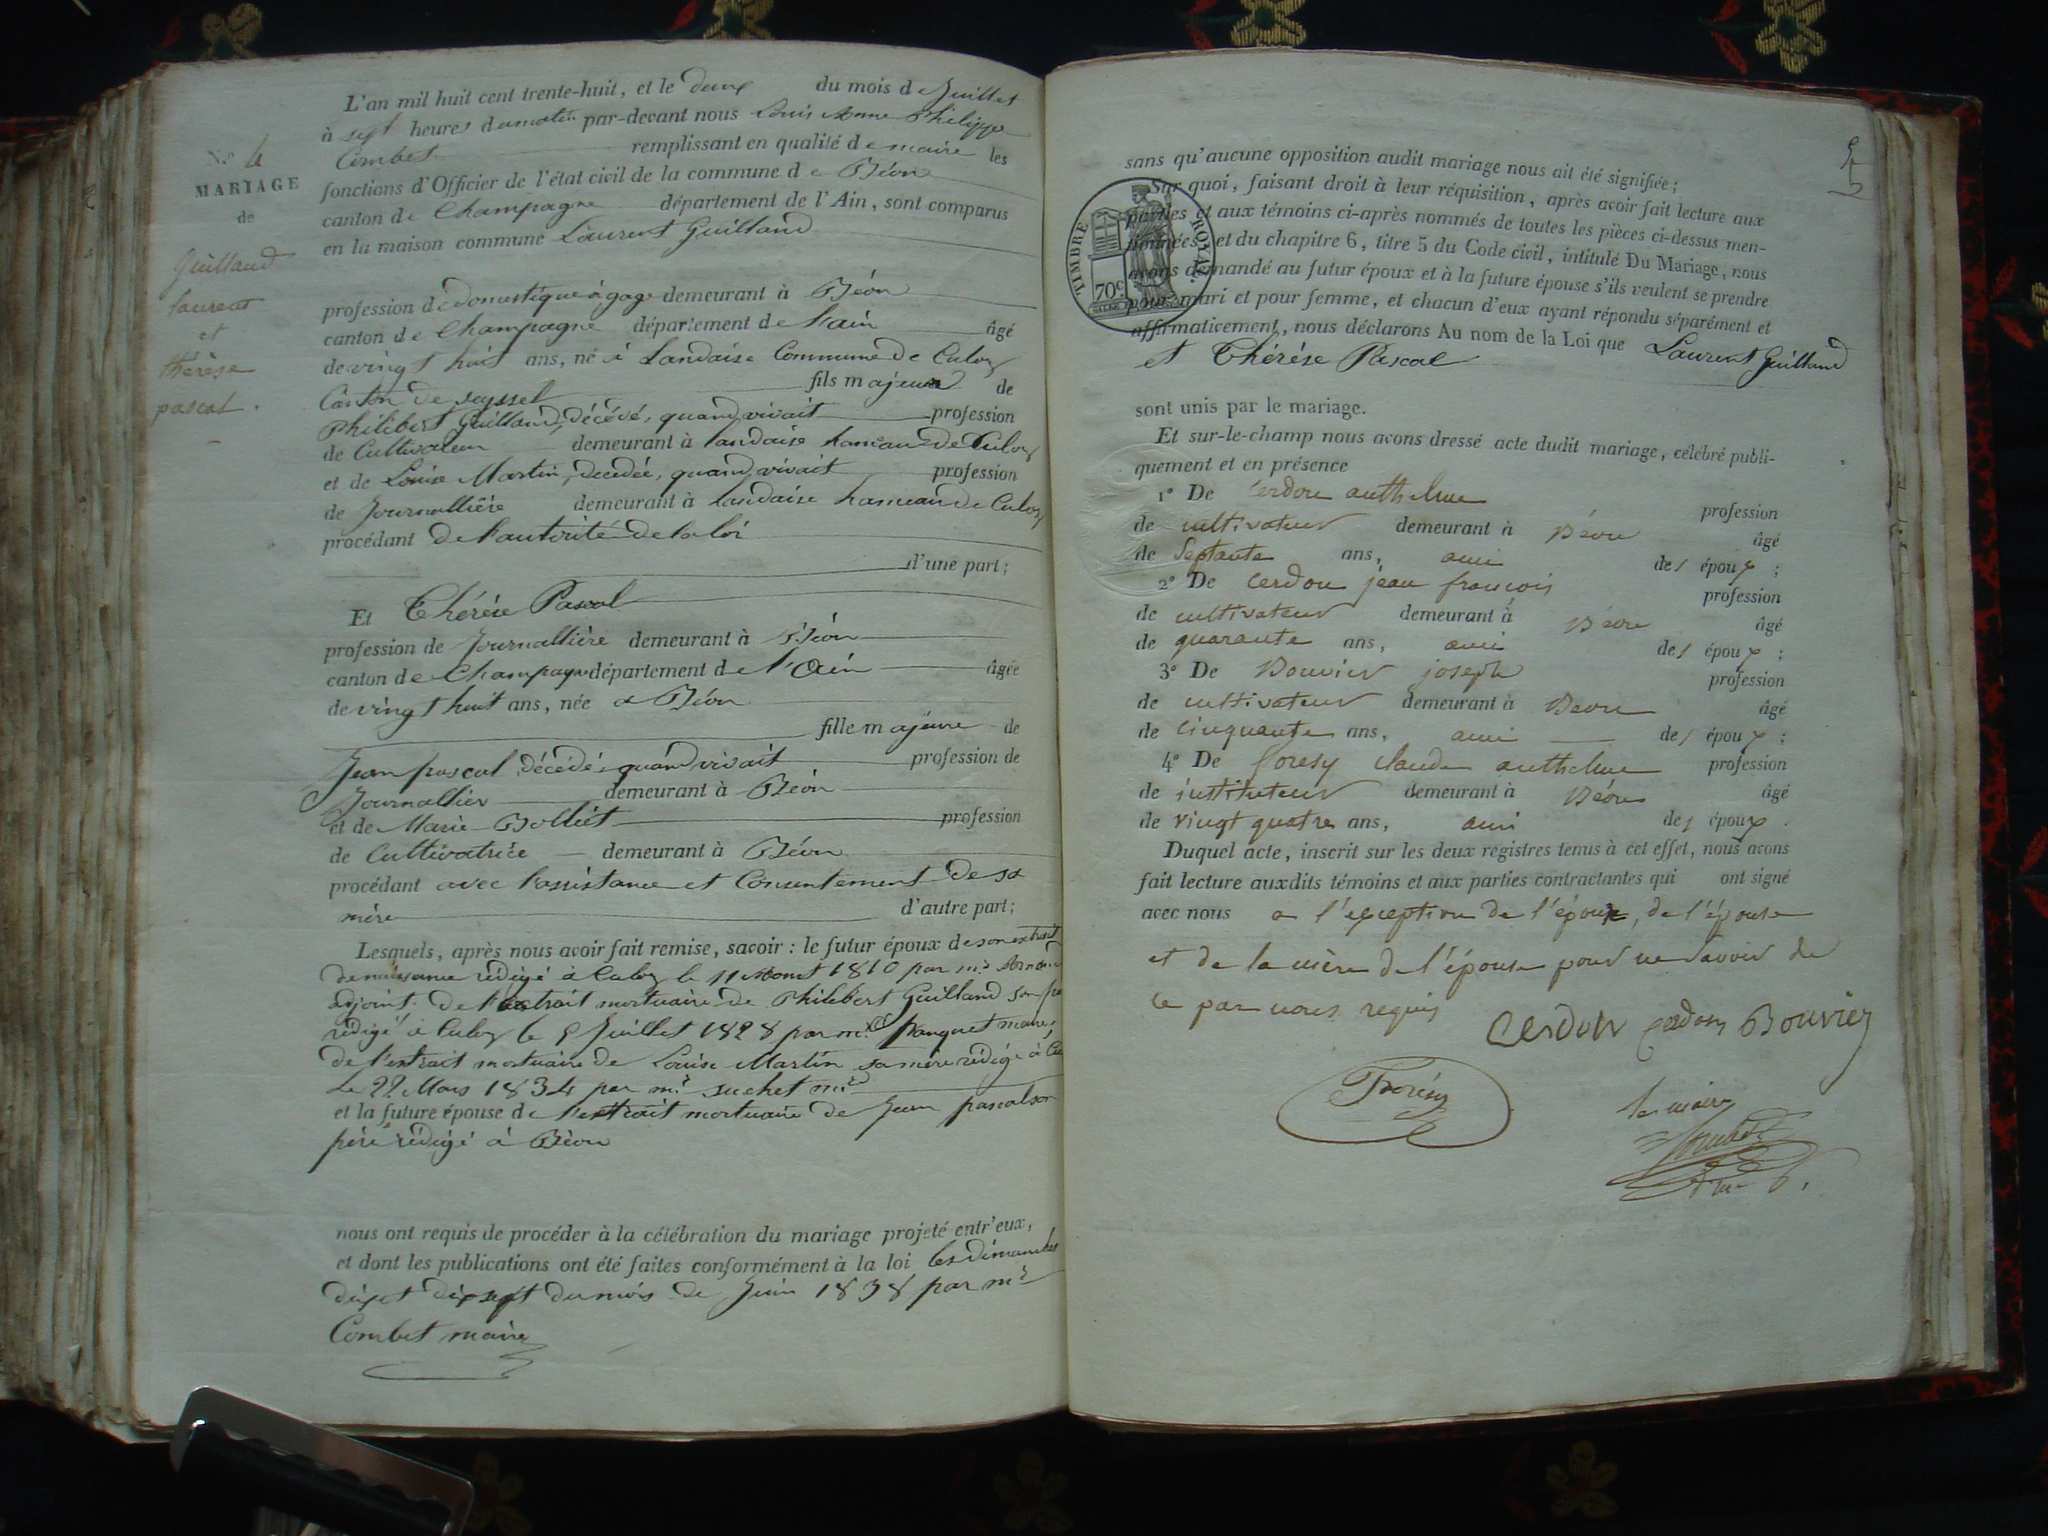 L'an mil huit cent trente-huit, et le deux du mois de Juillet
à sept heures du matin par-devant nous Louis Anne Philippe
Combet remplissant en qualité de maire les
fonctions d'Officier de l'état civil de la commune de Béon
canton de Champagne département de l'Ain, sont comparus
en la maison commune Laurent Guilland
profession de domestique à gage demeurant à Béon
canton de Champagne département de l'ain âgé
de vingt huit ans, né à Landaise Commune de Culoz
Canton de seyssel fils majeur de
Philibert Guilland, décédé, quand vivait profession
de Cultivateur demeurant à landaise hameau de Culoz
et de Louise Martin, décédée, quand vivait profession
de Journallière demeurant à landaise hameau de Culoz
procédant de l'autorité de la loi
d'une part;
Et Thérèse Pascal
profession de Journallière demeurant à Béon
canton de Champagne département de l'Ain âgée
de vingt huit ans, née a Béon
fille majeure de
Jean pascal, décédé, quand vivait profession de
Journallier demeurant à Béon
et de Marie Bolliet profession
de Cultivatrice demeurant à Béon
procédant avec l'assistance et Consentement de sa
mère d'autre part;
Lesquels, après nous avoir fait remise, savoir: le futur époux de son extrait
de naissance rédigé à Culoz le 11 1810 par mr
adjoint. de l'extrait mortuaire de Philibert Guilland son
rédigé à Culoz le Juillet 1828 par mr maire,
de l'extrait mortuaire de Louise Martin sa mère rédigé à
le 22 Mars 1834 par mr suchet
et la future épouse de l'extrait mortuaire de Jean pascal son
père rédigé à Béon
nous ont requis de procéder à la célébration du mariage projeté entr'eux,
et dont les publications ont été faites conformément à la loi les dimanches
dix et dix sept du mois de Juin 1838 par mr
Combet maire
No. 4
MARIAGE
de
Guilland
laurent
et
thérèse
pascal.
sans qu'aucune opposition audit mariage nous ait été signifiée;
Sur quoi, faisant droit à leur réquisition, après avoir fait lecture aux
parties et aux témoins ci-après nommés de toutes les pièces ci-dessus men-
tionnées, et du chapitre 6, titre 5 du Code civil, intitulé Du Mariage, nous
avons demandé au futur époux et à la future épouse s'ils veulent se prendre
pour mari et pour femme, et chacun d'eux ayant répondu séparément et
affirmativement, nous déclarons Au nom de la Loi que Laurent Guilland
et Thérèse Pascal
TIMBRE ROYAL.
70c
sont unis par le mariage.
Et sur-le-champ nous avons dressé acte dudit mariage, célébré publi-
quement et en présence
1° De Cerdon anthelme profession
de cultivateur demeurant à Béon âgé
de Septante ans, ami des époux;
2° De Cerdon jean françois profession
de cultivateur demeurant à Béon âgé
de quarante ans, ami des époux;
3° De Bouvier joseph profession
de cultivateur demeurant à Béon âgé
de cinquante ans, ami des époux;
4° De foresy claude anthelme profession
de instituteur demeurant à Béon âgé
de vingt quatre ans, ami des époux.
Duquel acte, inscrit sur les deux registres tenus à cet effet, nous avons
fait lecture auxdits témoins et aux parties contractantes qui ont signé
avec nous a l'exception de l'époux, de l'épouse
et de la mère de l'épouse pour ne savoir de
ce par nous requis
Cerdon Cerdon Bouvier
Foresy
le maire
Combet